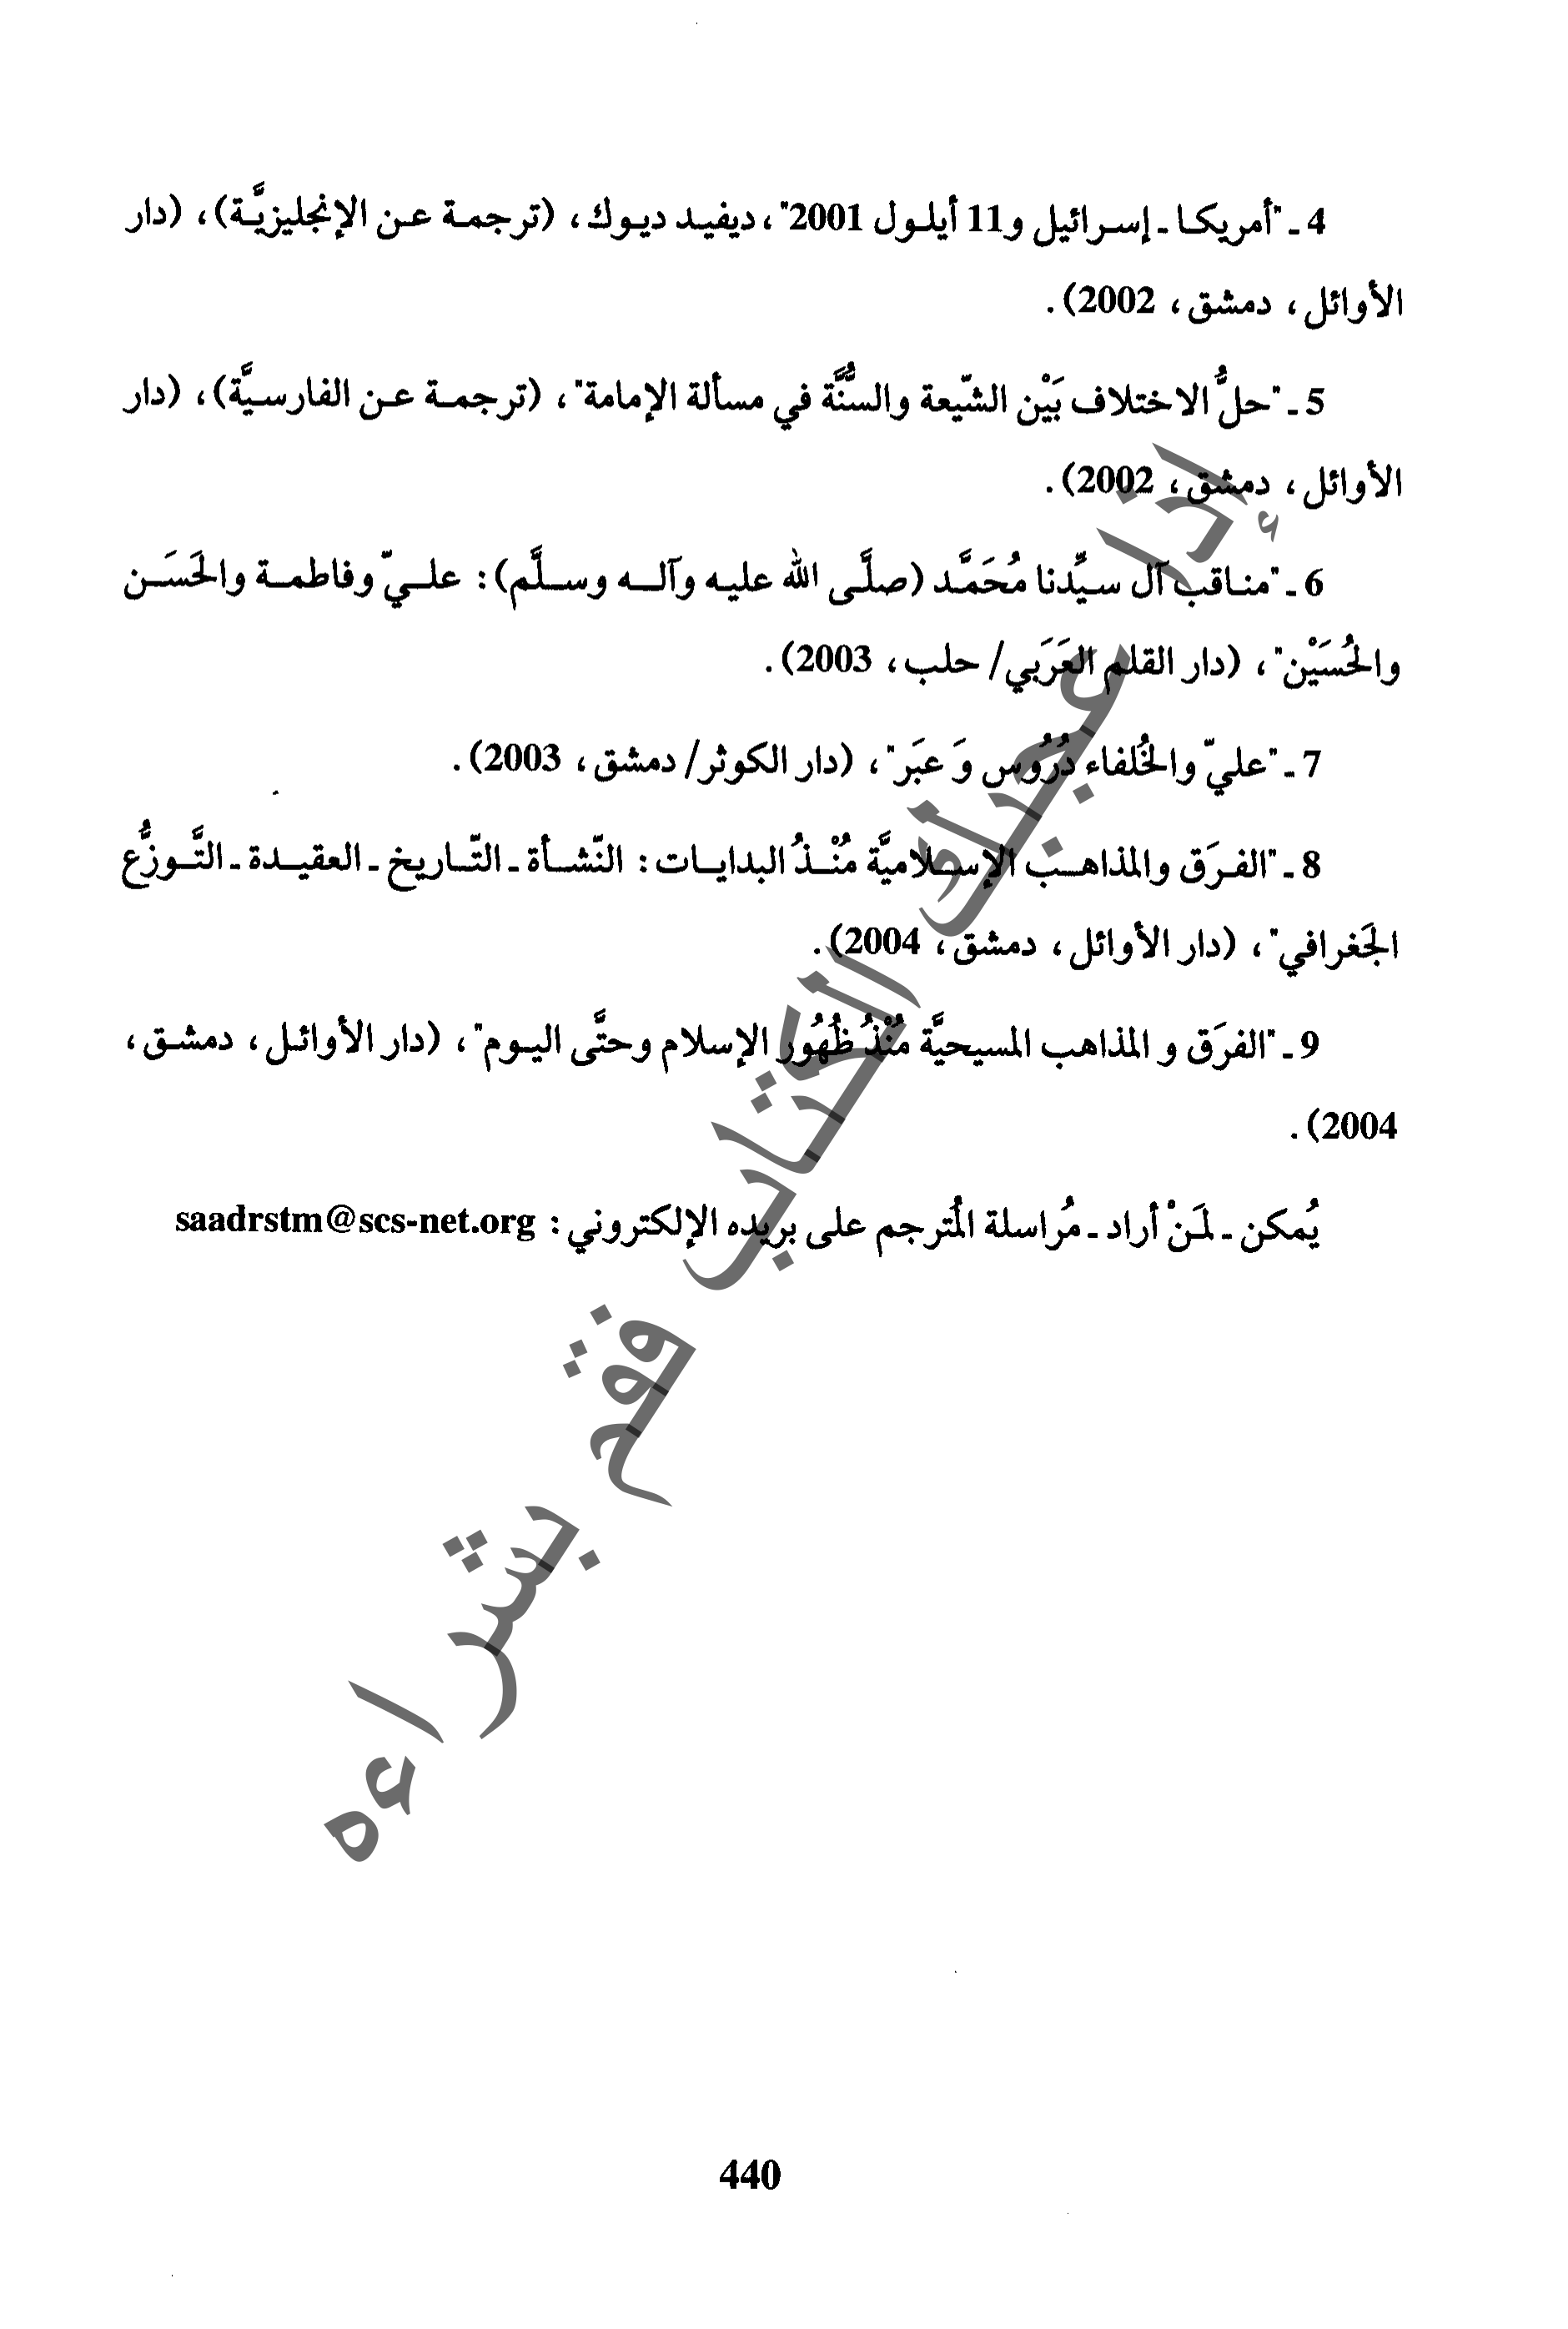 4 ـ "أمريكا ـ إسرائيل و11 أيلول 2001"، ديفيد ديوك، (ترجمة عن الإنجليزيَّة)، (دار
الأوائل، دمشق، 2002).
5 ـ "حلُّ الاختلاف بَيْن الشّيعة والسُّنَّة في مسألة الإمامة"، (ترجمة عن الفارسيَّة)، (دار
الأوائل، دمشق، 2002).
6 ـ "مناقب آل سيِّدنا مُحَمَّد (صلَّى الله عليه وآله وسلَّم): عليّ وفاطمة والحَسَن
والحُسَيْن"، (دار القلم العَرَبي/ حلب، 2003).
7 ـ "عليّ والخُلفاء دُرُوس وَ عبَر"، (دار الكوثر/ دمشق، 2003).
8 ـ "الفرَق والمذاهب الإسلاميَّة مُنْذُ البدايات: النّشأة ـ التّاريخ ـ العقيدة ـ التَّوزُّع
الجَغرافي"، (دار الأوائل، دمشق، 2004).
9 ـ "الفرَق و المذاهب المسيحيَّة مُنْذُ ظُهُور الإسلام وحتَّى اليوم"، (دار الأوائل، دمشق،
2004).
يُمكن ـ لمَنْ أراد ـ مُراسلة المُترجم على بريده الإلكتروني: saadrstm@scs-net.org
إذا عجبك الكتاب فقم بشراءه
440